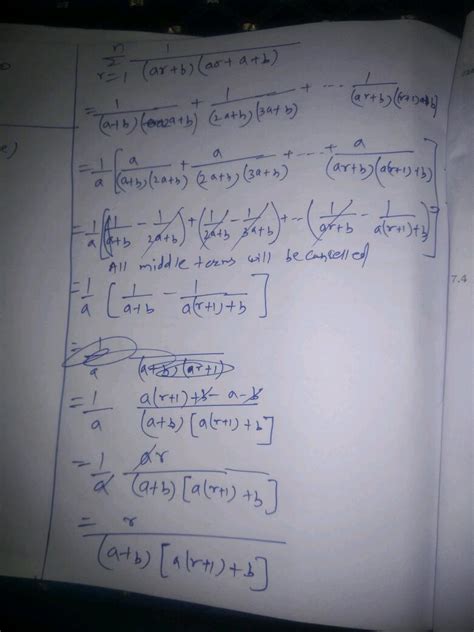 n
Σ 1/(ar+b)(ar+a+b)
r=1
= 1/(a+b)(2a+b) + 1/(2a+b)(3a+b) + --- 1/(ar+b)(r+1)a+b)
= 1/a [ a/(a+b)(2a+b) + a/(2a+b)(3a+b) + --- + a/(ar+b)(a(r+1)+b) ]
= 1/a [ (1/a+b - 1/2a+b) + (1/2a+b - 1/3a+b) + -- (1/ar+b - 1/a(r+1)+b) ] =
All middle terms will be cancelled
= 1/a [ 1/a+b - 1/a(r+1)+b ]
= 1/a (a+b)(ar+1)
= 1/a a(r+1)+b-a-b/(a+b)[a(r+1)+b]
= 1/a ar/(a+b)[a(r+1)+b]
= r/(a+b)[a(r+1)+b]
7.4